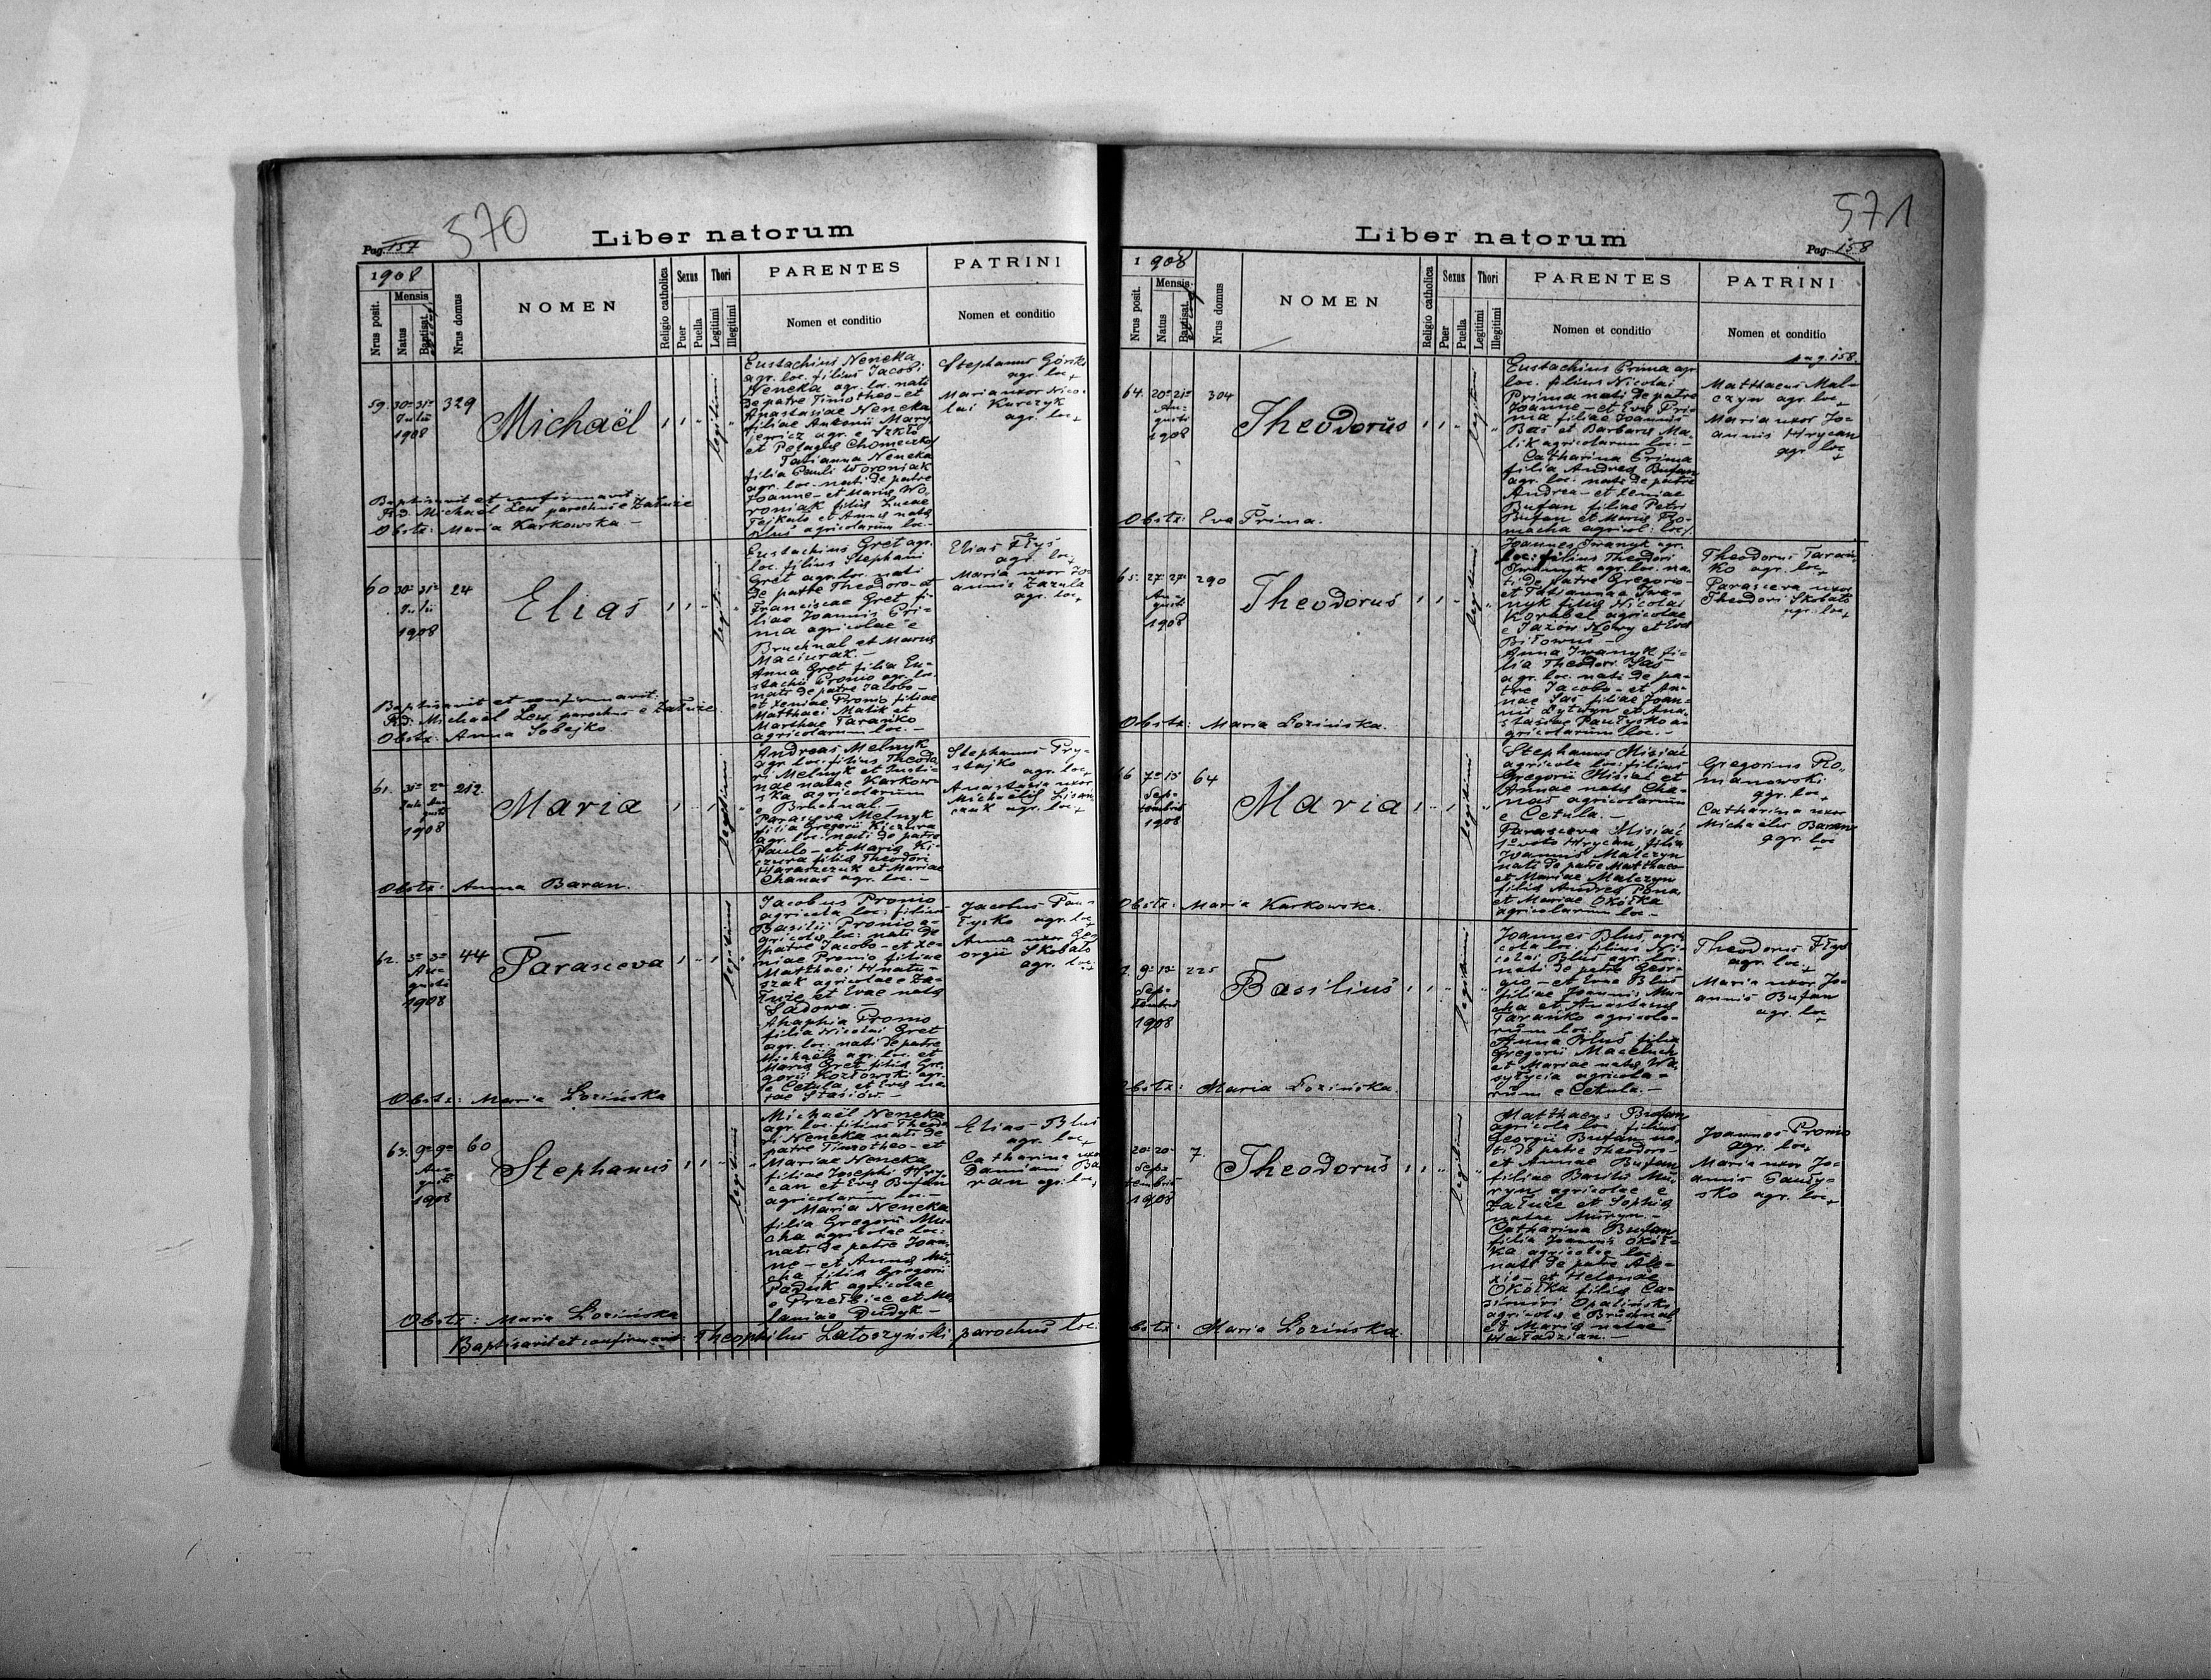 570
Liber natorum
Pag. 157
1908
Nrus posit.
Mensis
Natus
Baptisat.
Nrus domus
NOMEN
Religio catholica
Sexus
Puer
Puella
Thori
Legitimi
Illegitimi
PARENTES
Nomen et conditio
PATRINI
Nomen et conditio
59. 30ª 31ª 329
Julii
1908
Michaël
legitimi
Eustachius Neneka
agr. loc. filius Jacobi
Neneka agr. loc. nati
de patre Timotheo - et
Anastasiae Neneka
filiae Antonii
agr. e Szkło
et Pelagiae
Tatianna Neneka
filia Pauli Woroniak
agr. loc. nati de patre
Joanne - et Mariae Wo-
roniak filiae Lucae
et Annae natae
Bluś agricolarum loc. -
Stephanus
agr. loc.
Maria uxor Nico-
lai Kurczyk
agr. loc.
Baptisavit et confirmavit
Rd. Michaël Lew parochus e Załuże
Obstz: Maria Karkowska -
60 30ª 31ª 24
Julii
1908
Elias
legitimi
Eustachius Gret agr.
loc. filius Stephani
Gret agr. loc. nati
de patre Theodoro - et
Franciscae Gret fi-
liae Joannis Pri-
ma agricolae e
Bruchnal et Mariae
Maciurak. -
Anna Gret filia Eu-
stachii Promio agr. loc.
nati de patre Jacobo -
et Xeniae Promio filiae
Matthaei Malik et
Marthae Tarańko
agricolarum loc. -
Elias Flyś
agr. loc.
Maria uxor Jo-
annis Zazula
agr. loc.
Baptisavit et confirmavit:
Rd. Michaël Lew parochus e Załuże.
Obstz: Anna Sobejko
61. 31ª 2ª 212
1908
Maria
legitimi
Andreas Melnyk
agr. loc. filius Theodo-
ri Melnyk et Justi-
nae natae Karkow-
ska agricolarum
e Bruchnal. -
Parasceva Melnyk
filia Gregorii Kiczura
agr. loc. nati de patre
Paulo - et Mariae Ki-
czura filiae Theodori
Haraszczuk et Mariae
Chanas agr. loc. -
Stephanus Pry-
stajko
agr. loc.
Anastasia uxor
Michaëlis
agr. loc.
Obstz: Anna Baran.
62. 3ª 3ª 44
Au-
gusti
1908
Parasceva
legitimi
Jacobus Promio
agricola loc. filius
Basilii Promio a-
gricolae loc. nati de
patre Jacobo - et Xe-
niae Promio filiae
Matthaei Hnatu-
szak agricolae e Za-
łuże et Evae natae
Sadowa. -
Ahaphia Promio
filia Nicolai Gret
agr. loc. nati de patre
Michaële agr. loc. et
Mariae Gret filiae Gre-
gorii Kozłowski agr.
e Cetula, et Evae na-
tae Stasiów. -
Jacobus Pau-
łysko agr. loc.
Anna uxor Ge-
orgii Skobało
agr. loc.
Obstz: Maria Łozińska
63. 9ª 9ª 60
Au-
gusti
1908
Stephanus
legitimi
Michaël Neneka
agr. loc. filius Theodo-
ri Neneka nati de
patre Timotheo - et
Mariae Neneka
filiae Josephi Hry-
can et Evae Bufan
agricolarum loc. -
Maria Neneka
filia Gregorii Mu-
cha agricolae loc.
nati de patre Joan-
ne - et Annae Mu-
cha filiae Gregorii
Paduk agricolae
e Przełbice et Me-
laniae Dudyk -
Elias Bluś
agr. loc.
Catharina uxor
Damiani Ba-
ran agr. loc.
Obstz: Maria Łozińska
Baptisavit et confirmavit: Theophilus Łatoszyński parochus loc.
571
Liber natorum
Pag. 158
1908
Nrus posit.
Mensis
Natus
Baptisat.
Nrus domus
NOMEN
Religio catholica
Sexus
Puer
Puella
Thori
Legitimi
Illegitimi
PARENTES
Nomen et conditio
PATRINI
Nomen et conditio
pag. 158.
64. 20ª 21ª 304
Au-
gusti
1908
Theodorus
legitimi
Eustachius Prima agr.
loc. filius Nicolai
Prima nati de patre
Joanne - et Evae Pri-
ma filiae Joannis
Baś et Barbarae Ma-
lik agricolarum loc. -
Catharina Prima
filia Andreae Bufan
agr. loc. nati de patre
Andrea - et Xeniae
Bufan filiae Petri
Bufan et Mariae Ro-
macha agricol: loc.
Matthaeus Mal-
czyn agr. loc.
Maria uxor Jo-
annis Hrycan
agr. loc.
Obstz: Eva Prima.
65. 27ª 27ª 290
Au-
gusti
1908
Theodorus
legitimi
Joannes Iwanyk agr.
loc. filius Theodori
Iwanyk agr. loc. na-
ti de patre Gregorio -
et Tatiannae Iwa-
nyk filiae Nicolai
Korabel agricolae
e Jazów Nowy et Evae
Biłowus -
Anna Iwanyk fi-
lia Theodori Saś
agr. loc. nati de pa-
tre Jacobo - et An-
nae Saś filiae Joan-
nis Łytwyn et Ana-
stasiae Paułysko a-
gricolarum loc. -
Theodorus Tarań-
ko agr. loc.
Parasceva uxor
Theodori Skobało
agr. loc.
Obstz: Maria Łozińska.
66 7ª 13ª 64
Sep-
tembris
1908
Maria
legitimi
Stephanus Misiać
agricola loc. filius
Gregorii Misiać et
Annae natae Cha-
nas agricolarum
e Cetula. -
Parasceva Misiać
1º voto Hrycan, filia
Joannis Malczyn
nati de patre Matthaeo
et Mariae Malczyn
filiae Andreae Pona
et Mariae Okółka
agricolarum loc. -
Gregorius Ro-
manowski
agr. loc.
Catharina uxor
Michaëlis Baran
agr. loc.
Obstz: Maria Karkowska.
9ª 13ª 225
Sep-
tembris
1908
Basilius
legitimi
Joannes Bluś, agri-
cola loc. filius Ni-
colai Bluś agr. loc.
nati de patre Geor-
gio - et Evae Bluś
filiae Joannis Mu-
cha et Anastasiae
Tarańko agricola-
rum loc. -
Anna Bluś filia
Gregorii Maceluch
et Mariae natae Wa-
syłycia agricola-
rum e Cetula. -
Theodorus Flyś
agr. loc.
Maria uxor Jo-
annis Bufan
agr. loc.
Obstz: Maria Łozińska.
20ª 20ª 7.
Sep-
tembris
1908
Theodorus
legitimi
Matthaeus Bufan
agricola loc. filius
Georgii Bufan na-
ti de patre Theodoro -
et Annae Bufan
filiae Basilii Mu-
ryn agricolae e
Załuże et Sophiae
natae Muryn. -
Catharina Bufan
filia Joannis Okół-
ka agricolae loc.
nati de patre Ale-
xio - et Helenae
Okółka filiae Ca-
simiri Opaliński
agricolae e Bruchnal
et Mariae natae
Haładzian. -
Joannes Promio
agr. loc.
Maria uxor Jo-
annis Pauły-
sko agr. loc.
Obstz: Maria Łozińska.